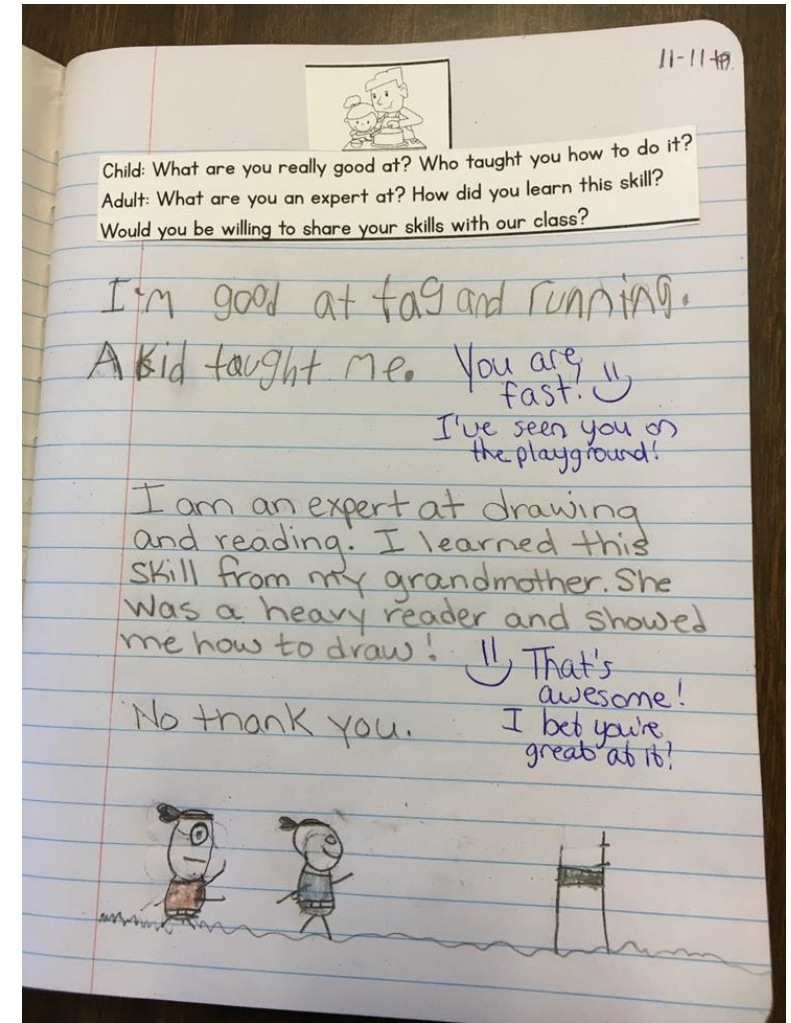 11-11-19
Child: What are you really good at? Who taught you how to do it?
Adult: What are you an expert at? How did you learn this skill?
Would you be willing to share your skills with our class?
I'm good at tag and running.
A kid taught me.
You are
fast!
I've seen you on
the playground!
I am an expert at drawing
and reading. I learned this
skill from my grandmother. She
was a heavy reader and showed
me how to draw!
That's
awesome!
No thank you.
I bet you're
great at it!